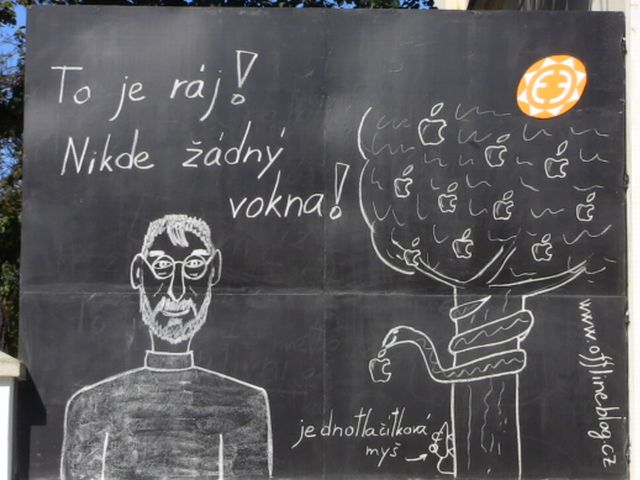 To je ráj!
Nikde žádný
vokna!
jednotlačítková
myš
www.offlineblog.cz